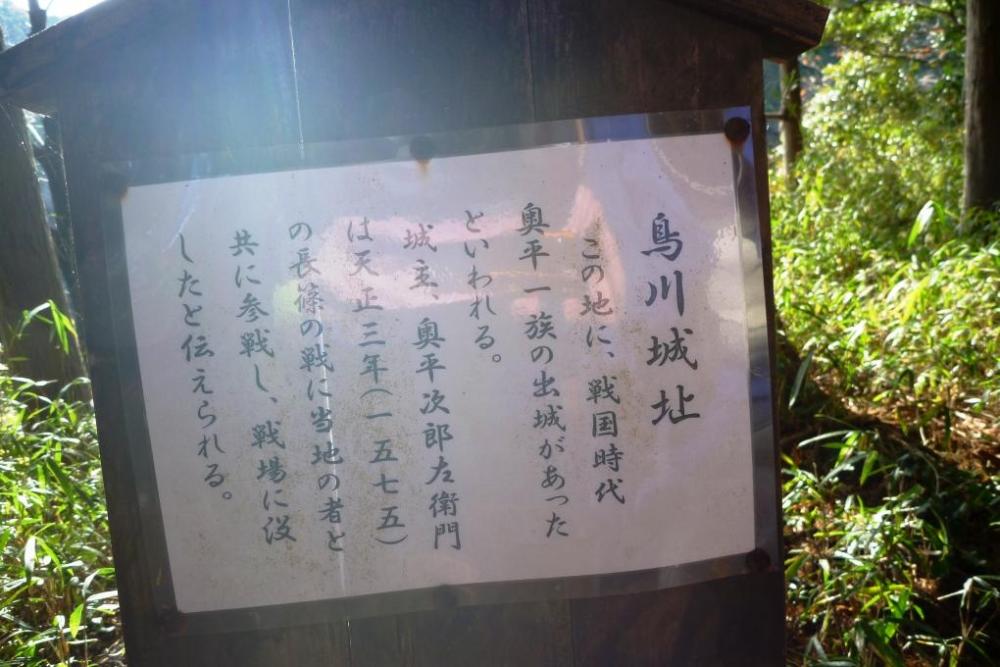 鳥川城址
この地に、戦国時代
奥平一族の出城があった
といわれる。
城主、奥平次郎左衛門
は天正三年(一五七五)
の長篠の戦に当地の者と
共に参戦し、戦場に没
したと伝えられる。